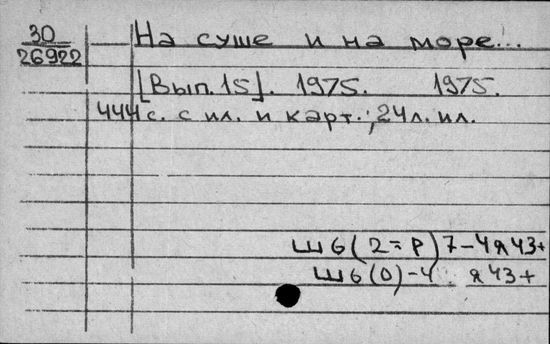 30
26922
На суше и на море...
[Вып. 15]. 1975. 1975.
444 с. с ил. и карт.; 24 л. ил.
Ш6(2=Р)7-4я43+
Ш6(0)-4 я43+